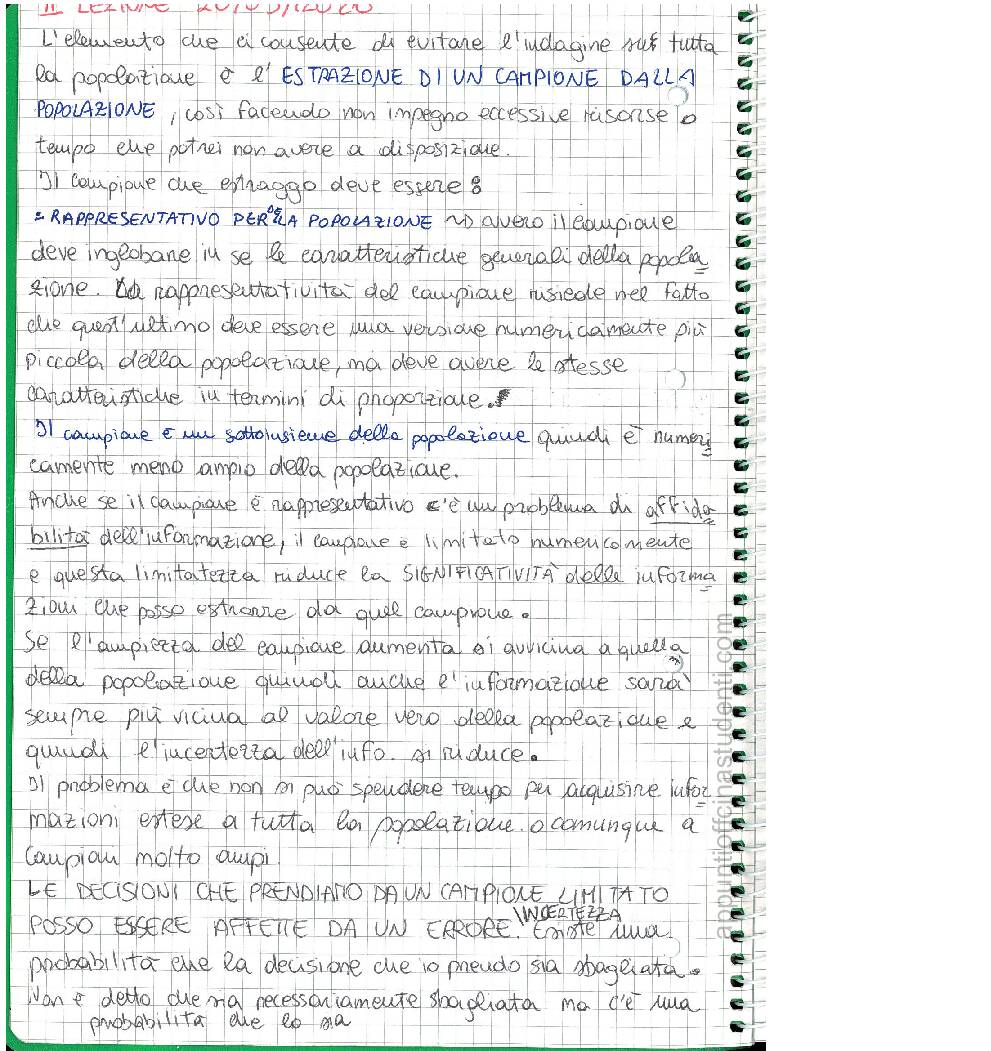 II LEZIONE
L'elemento che ci consente di evitare l'indagine su tutta
la popolazione è l'ESTRAZIONE DI UN CAMPIONE DALLA
POPOLAZIONE, così facendo non impegno eccessive risorse o
tempo che potrei non avere a disposizione.
Il campione che estraggo deve essere:
- RAPPRESENTATIVO PER LA POPOLAZIONE ~> ovvero il campione
deve inglobare in se le caratteristiche generali della popola
zione. La rappresentatività del campione risiede nel fatto
che quest'ultimo deve essere una versione numericamente più
piccola della popolazione, ma deve avere le stesse
caratteristiche in termini di proporzione.
Il campione è un sottoinsieme della popolazione quindi è numeri
camente meno ampio della popolazione.
Anche se il campione è rappresentativo c'è un problema di affida
bilità dell'informazione, il campione è limitato numericamente
e questa limitatezza riduce la SIGNIFICATIVITÀ delle informa
zioni che posso estrarre da quel campione.
Se l'ampiezza del campione aumenta si avvicina a quella
della popolazione quindi anche l'informazione sarà
sempre più vicina al valore vero della popolazione e
quindi l'incertezza dell'info. si riduce.
Il problema è che non si può spendere tempo per acquisire infor
mazioni estese a tutta la popolazione o comunque a
campioni molto ampi
LE DECISIONI CHE PRENDIAMO DA UN CAMPIONE LIMITATO
POSSO ESSERE AFFETTE DA UN ERRORE. \INCERTEZZA Esiste una
probabilità che la decisione che io prendo sia sbagliata.
Non è detto che sia necessariamente sbagliata ma c'è una
probabilità che lo sia
appuntiofficinastudenti.com